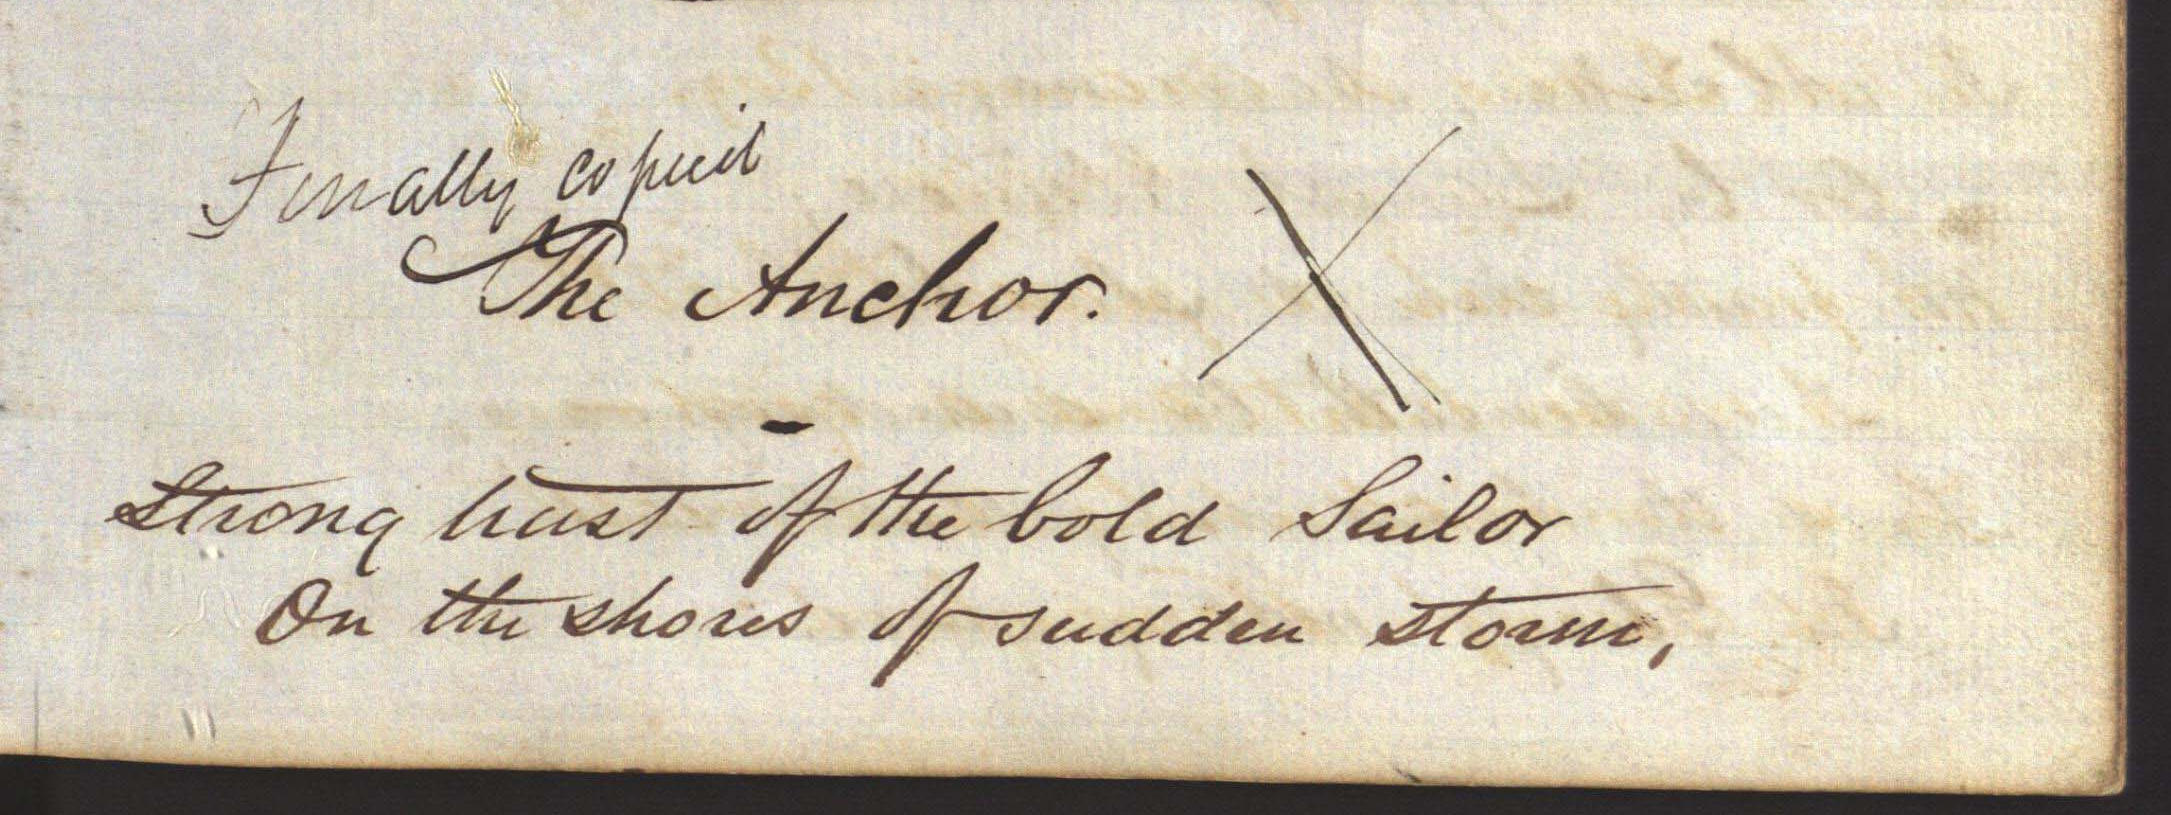 Finally copied
The Anchor. X
Strong trust of the bold Sailor
On the shores of sudden storm,